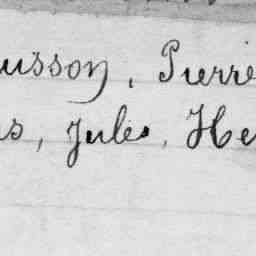 usson, Pierre
s, Jules, He